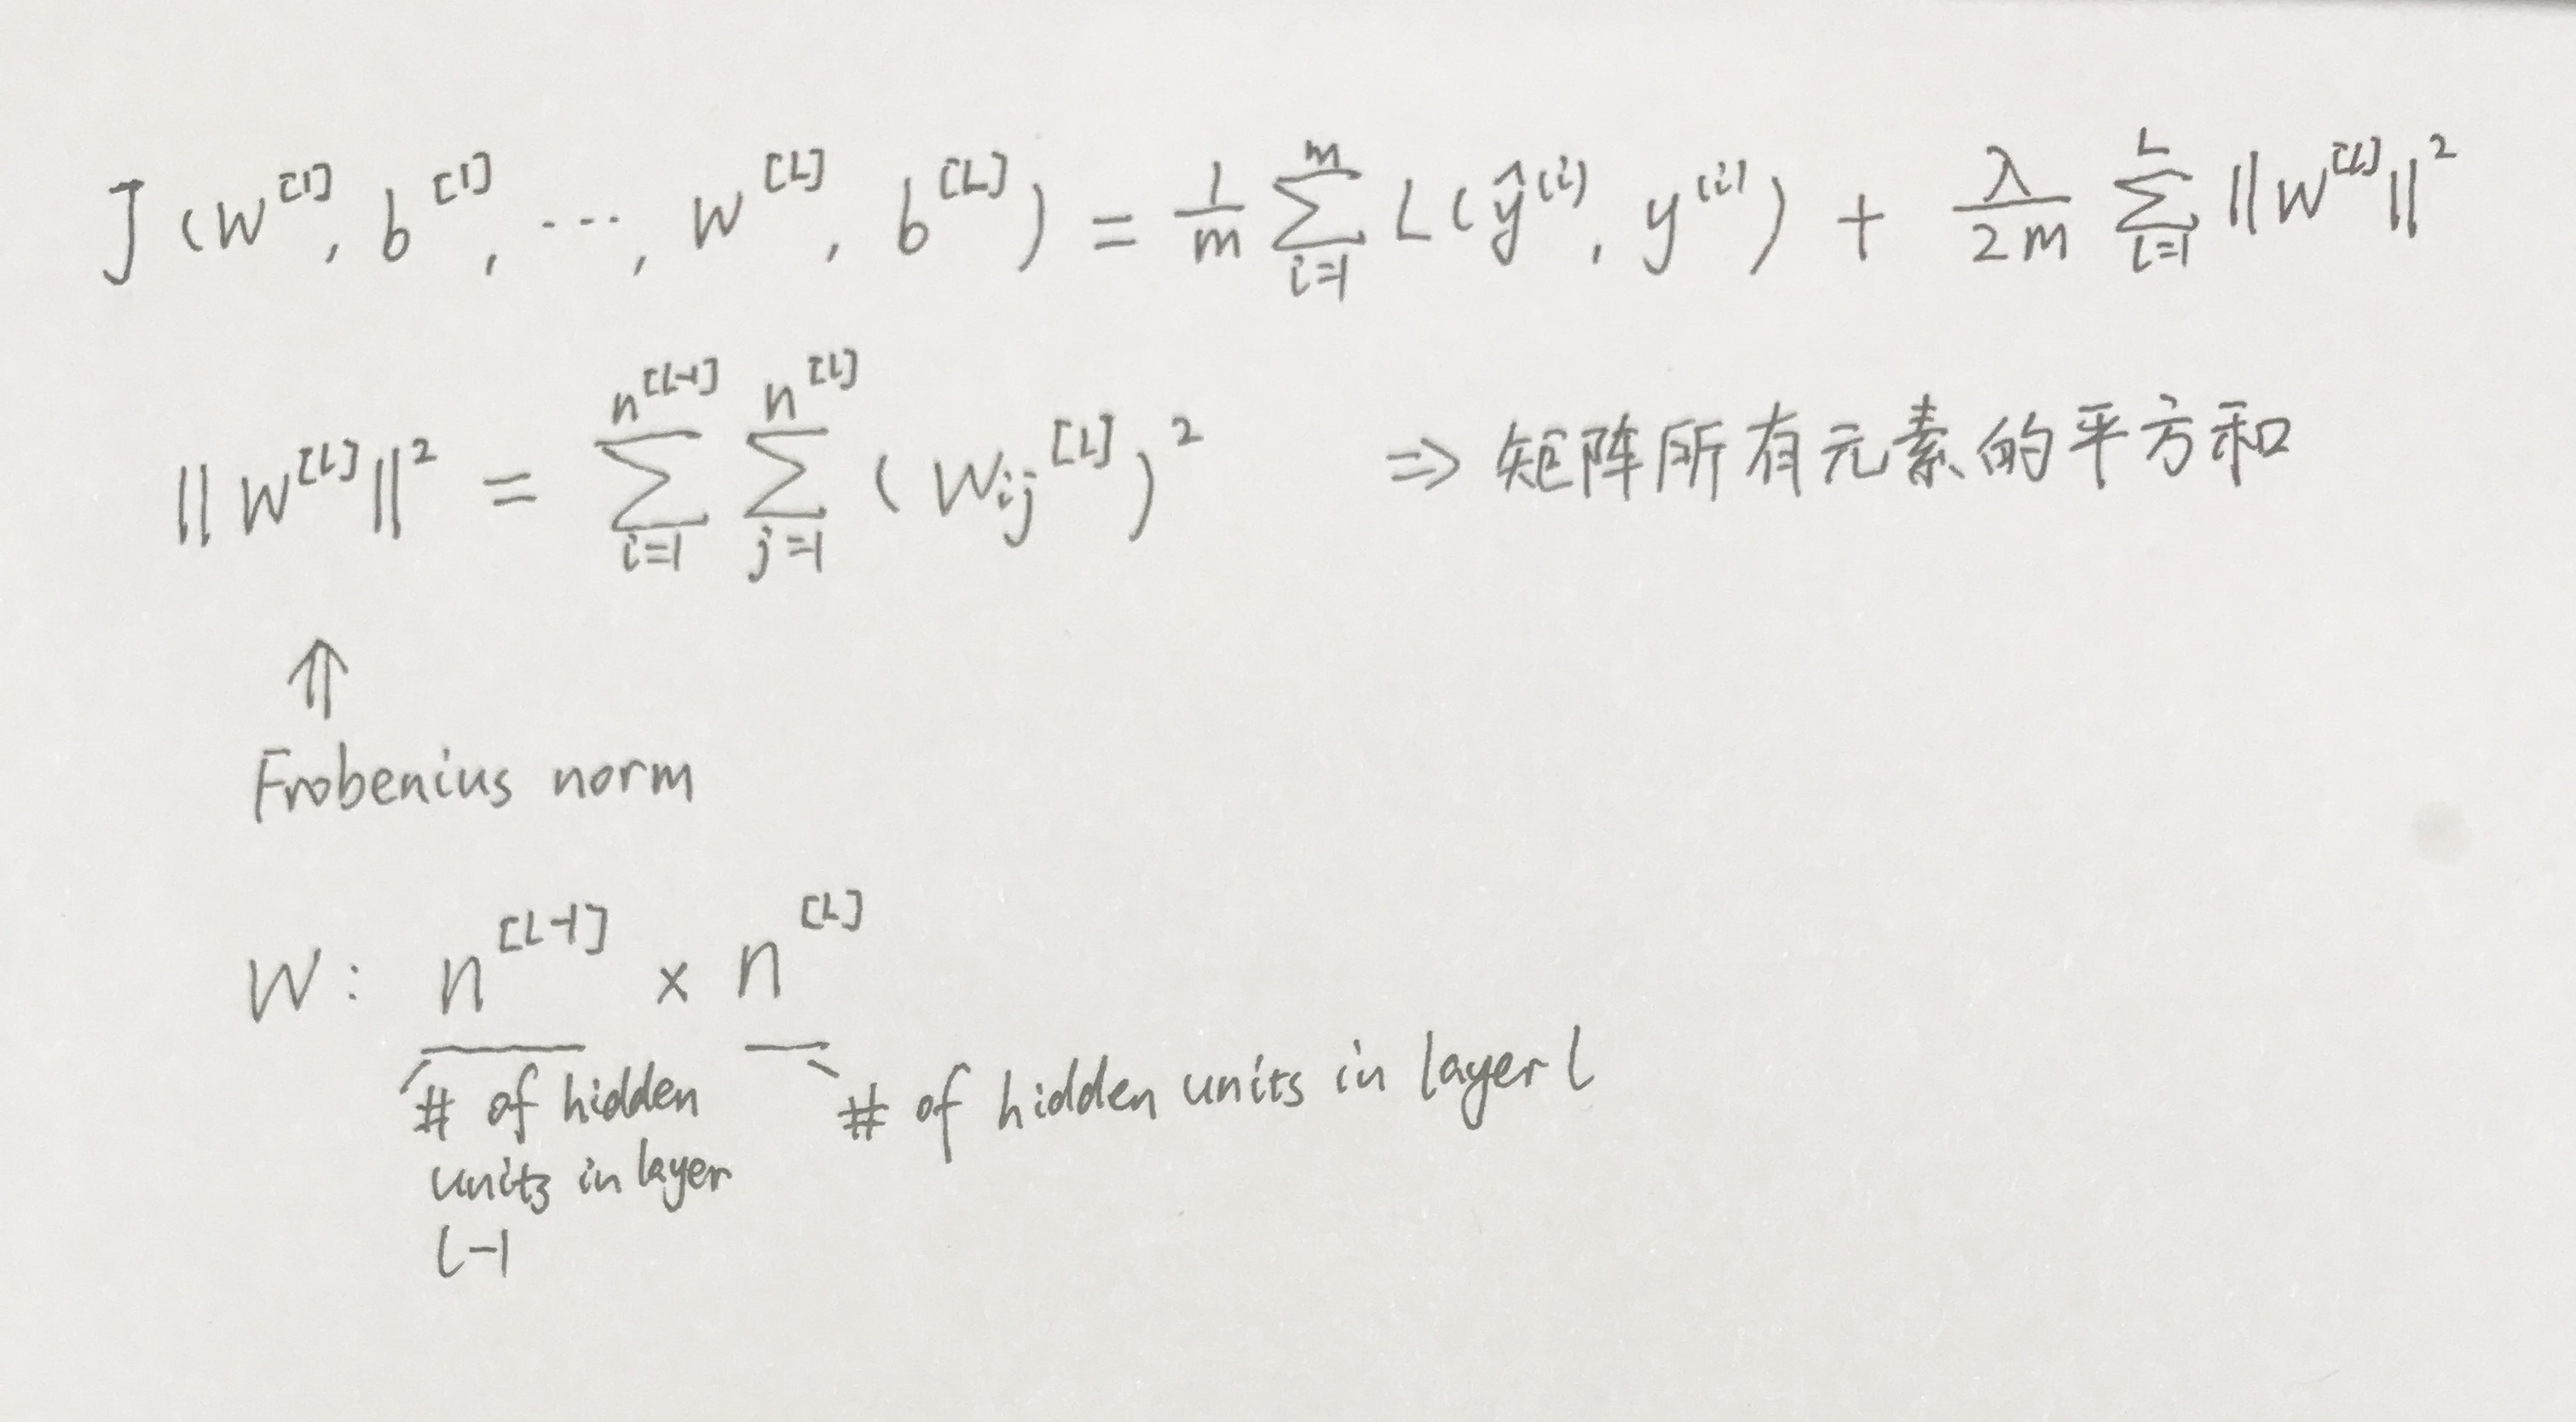 J(W^[1], b^[1], ..., W^[L], b^[L]) = 1/m ∑_{i=1}^{m} L(ŷ^(i), y^(i)) + λ/2m ∑_{l=1}^{L} ||W^[L]||²
||W^[L]||² = ∑_{i=1}^{n^[L-1]} ∑_{j=1}^{n^[L]} (Wij^[L])² ⇒ 矩阵所有元素的平方和
⇑
Frobenius norm
W: n^[L-1] × n^[L]
# of hidden units in layer l-1
# of hidden units in layer l